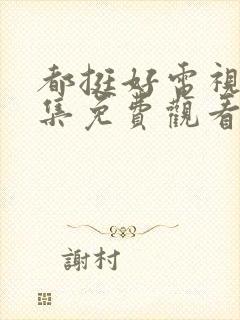 都挺好電視
集免費觀看
謝村